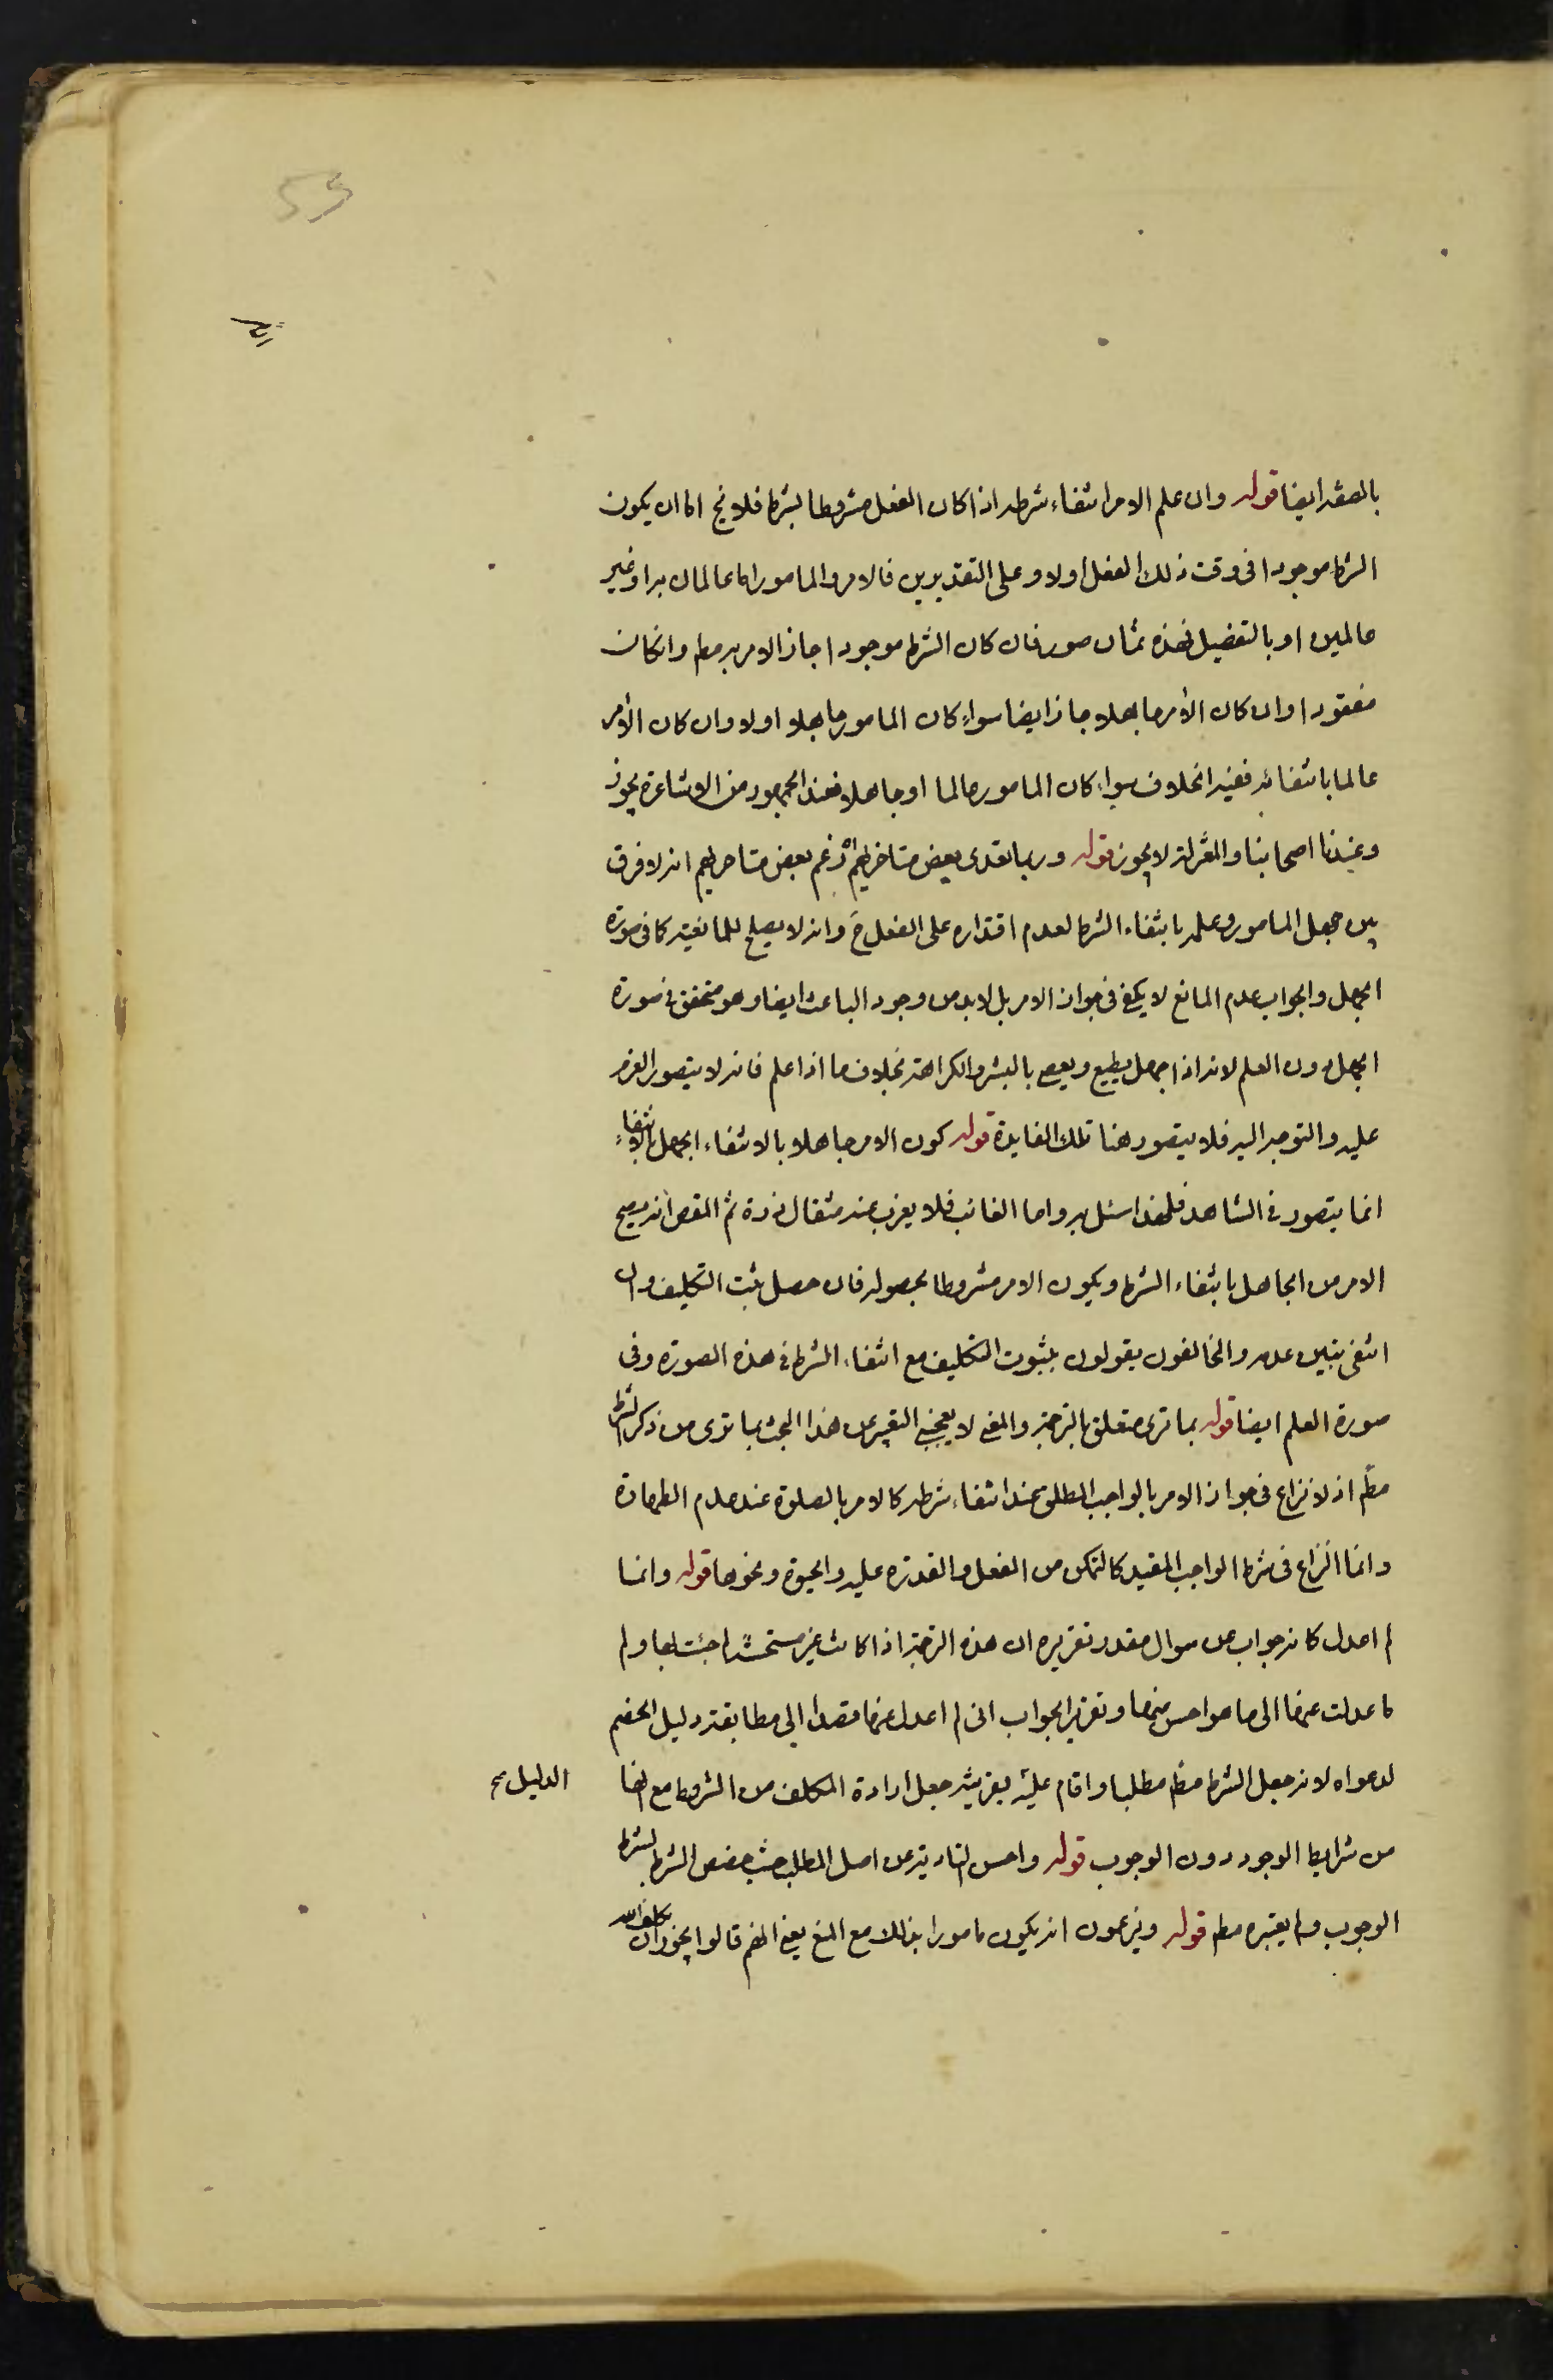 55
بالصفة ايضا قوله وان علم الامر انتفاء شرطه اذا كان الفعل مشروطا بشرط فلا يخ اما ان يكون
الشرط موجودا فى وقت ذلك الفعل اولا وعلى التقديرين فالامر والمامور اما عالمان به او غير
عالمين او بالتفصيل فهذه ثمان صور فان كان الشرط موجودا جاز الامر به مط وانكان
مفقودا وان كان الآمر جاهلا جاز ايضا سواء كان المامور جاهلا اولا وان كان الآمر
عالما بانتفائه ففيه الخلاف سواء كان المامور عالما او جاهلا فعند الجمهور من الاشاعرة يجوز
وعند اصحابنا والمعتزلة لا يجوز قوله وربما تعدى بعض متاخريهم زعم بعض متاخريهم انه لا فرق
بين جهل المامور وعلمه بانتفاء الشرط لعدم اقتداره على الفعل ح وانه لا يصلح للمانعية كما فى صورة
الجهل والجواب عدم المانع لا يكفى فى جواز الامر بل لابد من وجود الباعث ايضا وهو متحقق فى صورة
الجهل دون العلم لانه اذا جهل يطيع ويعصى بالبشر والكراهة بخلاف ما اذا علم فانه لا يتصور العزم
عليه والتوجه اليه فلا يتصور هنا تلك الفايدة قوله كون الامر جاهلا بالانتفاء الجهل بالانتفاء
انما يتصور فى الشاهد فلهذا اسئل به واما الغائب فلا يعزب عنه مثقال ذرة ثم المقص انه يصح
الامر من الجاهل بانتفاء الشرط ويكون الامر مشروطا بحصوله فان حصل ثبت التكليف وان
انتفى تبين عدمه والمخالفون يقولون بثبوت التكليف مع انتفاء الشرط فى هذه الصورة وفى
صورة العلم ايضا قوله بما ترى متعلق بالترجمة والمعنى لا يعجبنى التعبير عن هذا البحث بما ترى من ذكر الشرط
مط اذ لا نزاع فى جواز الامر بالواجب المطلق عند انتفاء شرطه كالامر بالصلوة عند عدم الطهارة
وانما النزاع فى شرط الواجب المقيد كالتمكن من الفعل والقدرة عليه والحيوة ونحوها قوله وانما
لم اعدل كانه جواب عن سوال مقدر تقريره ان هذه الترجمة اذا كانت غير مستحسنة لم جئت بها ولم
ما عدلت عنها الى ما هو احسن منها وتقرير الجواب انى لم اعدل عنها قصدا الى مطابقة دليل الخصم
لدعواه لانه جعل الشرط مط مطلبا واقام عليه بقرينة جعل ارادة المكلف من الشروط مع انها
الدليل صح
من شرايط الوجود دون الوجوب قوله واحسن التادية عن اصل المطلب حيث خصص الشرط بشرط
الوجوب ولم يعتبره مط قوله ويزعمون انه يكون مامورا بذلك مع المنع يعنى انهم قالوا يجوز ان يكلف الله